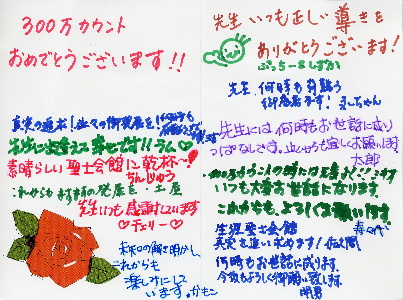 300万カウント
おめでとうございます!!
真実の追求!益々の御発展を
先生に出会えて幸せです!!ラム♡
素晴らしい聖士会館に乾杯〜!
ちんじゅう
これからも益々の発展を・土屋
先生いつも感謝しています
♡チェリー♡
未知の解き明かし
これからも
楽しみにして
います。かもこ
先生いつも正しい導きを
ありがとうございます!
ぷっちーましまろ
先生、何時も有難う
御座居ます!
先生には何時もお世話になり
っぱなしです。これからも宜しくお願いします
太郎
いつも大変お世話になります。
これからも、よろしくお願いします。
生涯聖士会館
真実を追い求めます!佐次間
何時もお世話に成ります。
今後もよろしく御願い致します。
明男